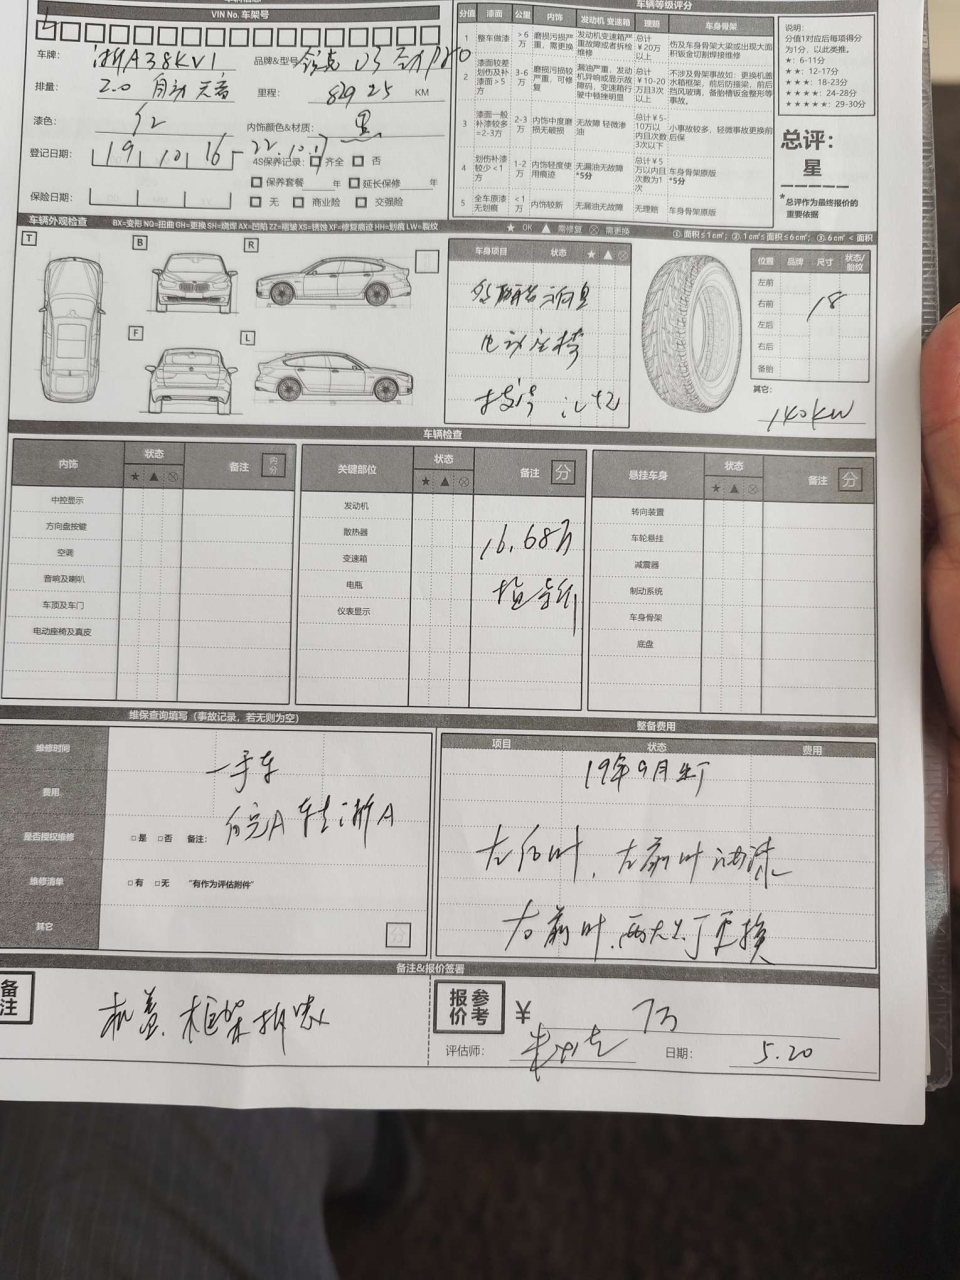 车辆信息
VIN No. 车架号
车牌: 浙A38KV1 品牌&型号 领克 03
排量: 2.0 自动 里程: 82925 KM
漆色: 红 内饰颜色&材质: 黑
登记日期: 19 10 16 - 22.10.17 4S保养记录: 齐全 否
保养套餐 年 延长保修 年
保险日期: 无 商业险 交强险
车辆等级评分
分值 漆面 公里 内饰 发动机 变速箱 理赔 车身骨架
1 整车做漆 >6万 磨损污损严重, 需更换 发动机变速箱严重故障或者拆检维修 总计¥20万以上 伤及车身骨架大梁或出现大面积钣金切割焊接维修
2 漆面较差划伤及补漆面>5方 3-6万 磨损污损较严重, 可修复 漏油严重, 发动机异响或显示故障码, 变速箱行驶中顿挫明显 总计¥10-20万且3次以上 不涉及骨架事故如: 更换机盖水箱框架, 前后防撞梁, 前后挡风玻璃, 备胎槽钣金整形等事故。
3 漆面一般补漆较多=2-3方 2-3万 内饰中度磨损无破损 无故障 轻微渗油 总计¥5-10万以内且次数3次以下 小事故较多, 轻微事故更换前后保
4 划伤补漆较少<1方 1-2万 内饰轻度使用痕迹 无漏油无故障 *5分 总计¥5万以内且次数为1次 车身骨架原版 *5分
5 全车原漆无划痕 <1万 内饰较新 无漏油无故障 无理赔 车身骨架原版
说明:
分值1对应后每项得分为1分, 以此类推。
★: 6-11分
★★: 12-17分
★★★: 18-23分
★★★★: 24-28分
★★★★★: 29-30分
总评:
星
*总评作为最终报价的重要依据
车辆外观检查 BX=变形 NQ=扭曲 GH=更换 SH=烧焊 AX=凹陷 ZZ=褶皱 XS=锈蚀 XF=修复痕迹 HH=划痕 LW=裂纹 ★ OK ▲ 需修复 ⊗ 需更换 ①. 面积≤1㎝²; ②. 1㎝²≤面积≤6㎝²; ③. 6㎝²<面积
T B R
F L
车身项目 状态 ★ ▲ ⊗
电动座椅
位置 品牌 尺寸 状态/胎纹
左前
右前 18
左后
右后
备胎
其它:
140KW
车辆检查
内饰 状态 ★ ▲ ⊗ 备注 内分
中控显示
方向盘按键
空调
音响及喇叭
车顶及车门
电动座椅及真皮
关键部位 状态 ★ ▲ ⊗ 备注 分
发动机
散热器 16.68万
变速箱
电瓶 指导价
仪表显示
悬挂车身 状态 ★ ▲ ⊗ 备注 分
转向装置
车轮悬挂
减震器
制动系统
车身骨架
底盘
维保查询填写 (事故记录, 若无则为空)
维修时间 一手车
费用
是否授权维修 □是 □否 备注: 皖A转浙A
维修清单 □有 □无 "有作为评估附件"
其它 分
整备费用
项目 状态 费用
19年9月生产
左后叶, 左前叶油漆
右前叶, 两大灯更换
备注&报价签署
备注 机盖, 框架拆喷
参考报价 ¥ 7万
评估师: 日期: 5.20